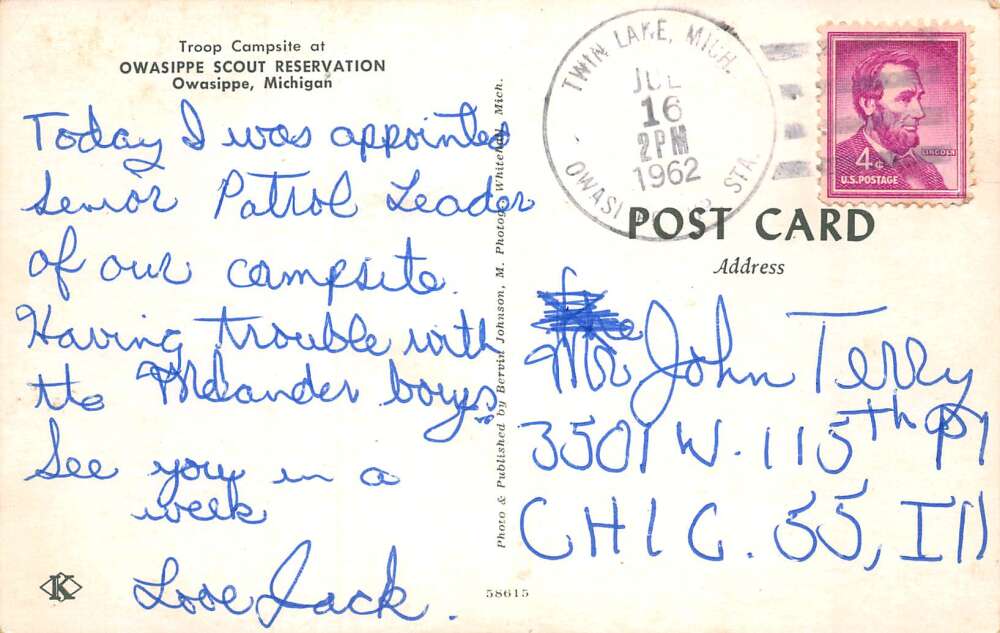 Troop Campsite at
OWASIPPE SCOUT RESERVATION
Owasippe, Michigan
Today I was appointed
Senior Patrol Leader
of our campsite.
Having trouble with
the boys.
See you in a
week
Love Jack.
K
Photo & Published by Bervin Johnson, M. Photog., Whitehall, Mich.
58615
TWIN LAKE, MICH.
JUL
16
2PM
1962
STA.
LINCOLN
4¢
U.S. POSTAGE
POST CARD
Address
Mr John Terry
3501 W. 115th Pl
CHIC. 55, Ill